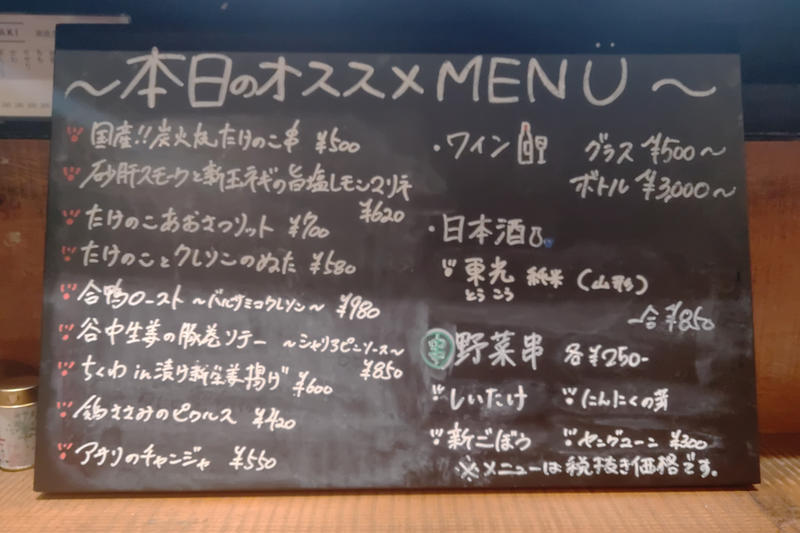 AKI
～本日のオススメMENU～
国産!!炭火焼たけのこ串 ¥500
砂肝スモークと新玉ネギの旨塩レモンマリネ
¥620
たけのこあおさリゾット ¥700
たけのことクレソンのぬた ¥580
合鴨ロースト ～バルサミコクレソン～ ¥980
谷中生姜の豚巻ソテー ～シャリアピンソース～
¥850
ちくわin漬け新生姜揚げ ¥600
鶏ささみのピクルス ¥420
アサリのチャンジャ ¥550
・ワイン グラス ¥500～
ボトル ¥3,000～
・日本酒
東光 純米 (山形)
とうこう
一合 ¥850
野菜串 各¥250-
しいたけ にんにくの芽
新ごぼう ヤングコーン ¥300
※メニューは税抜き価格です。